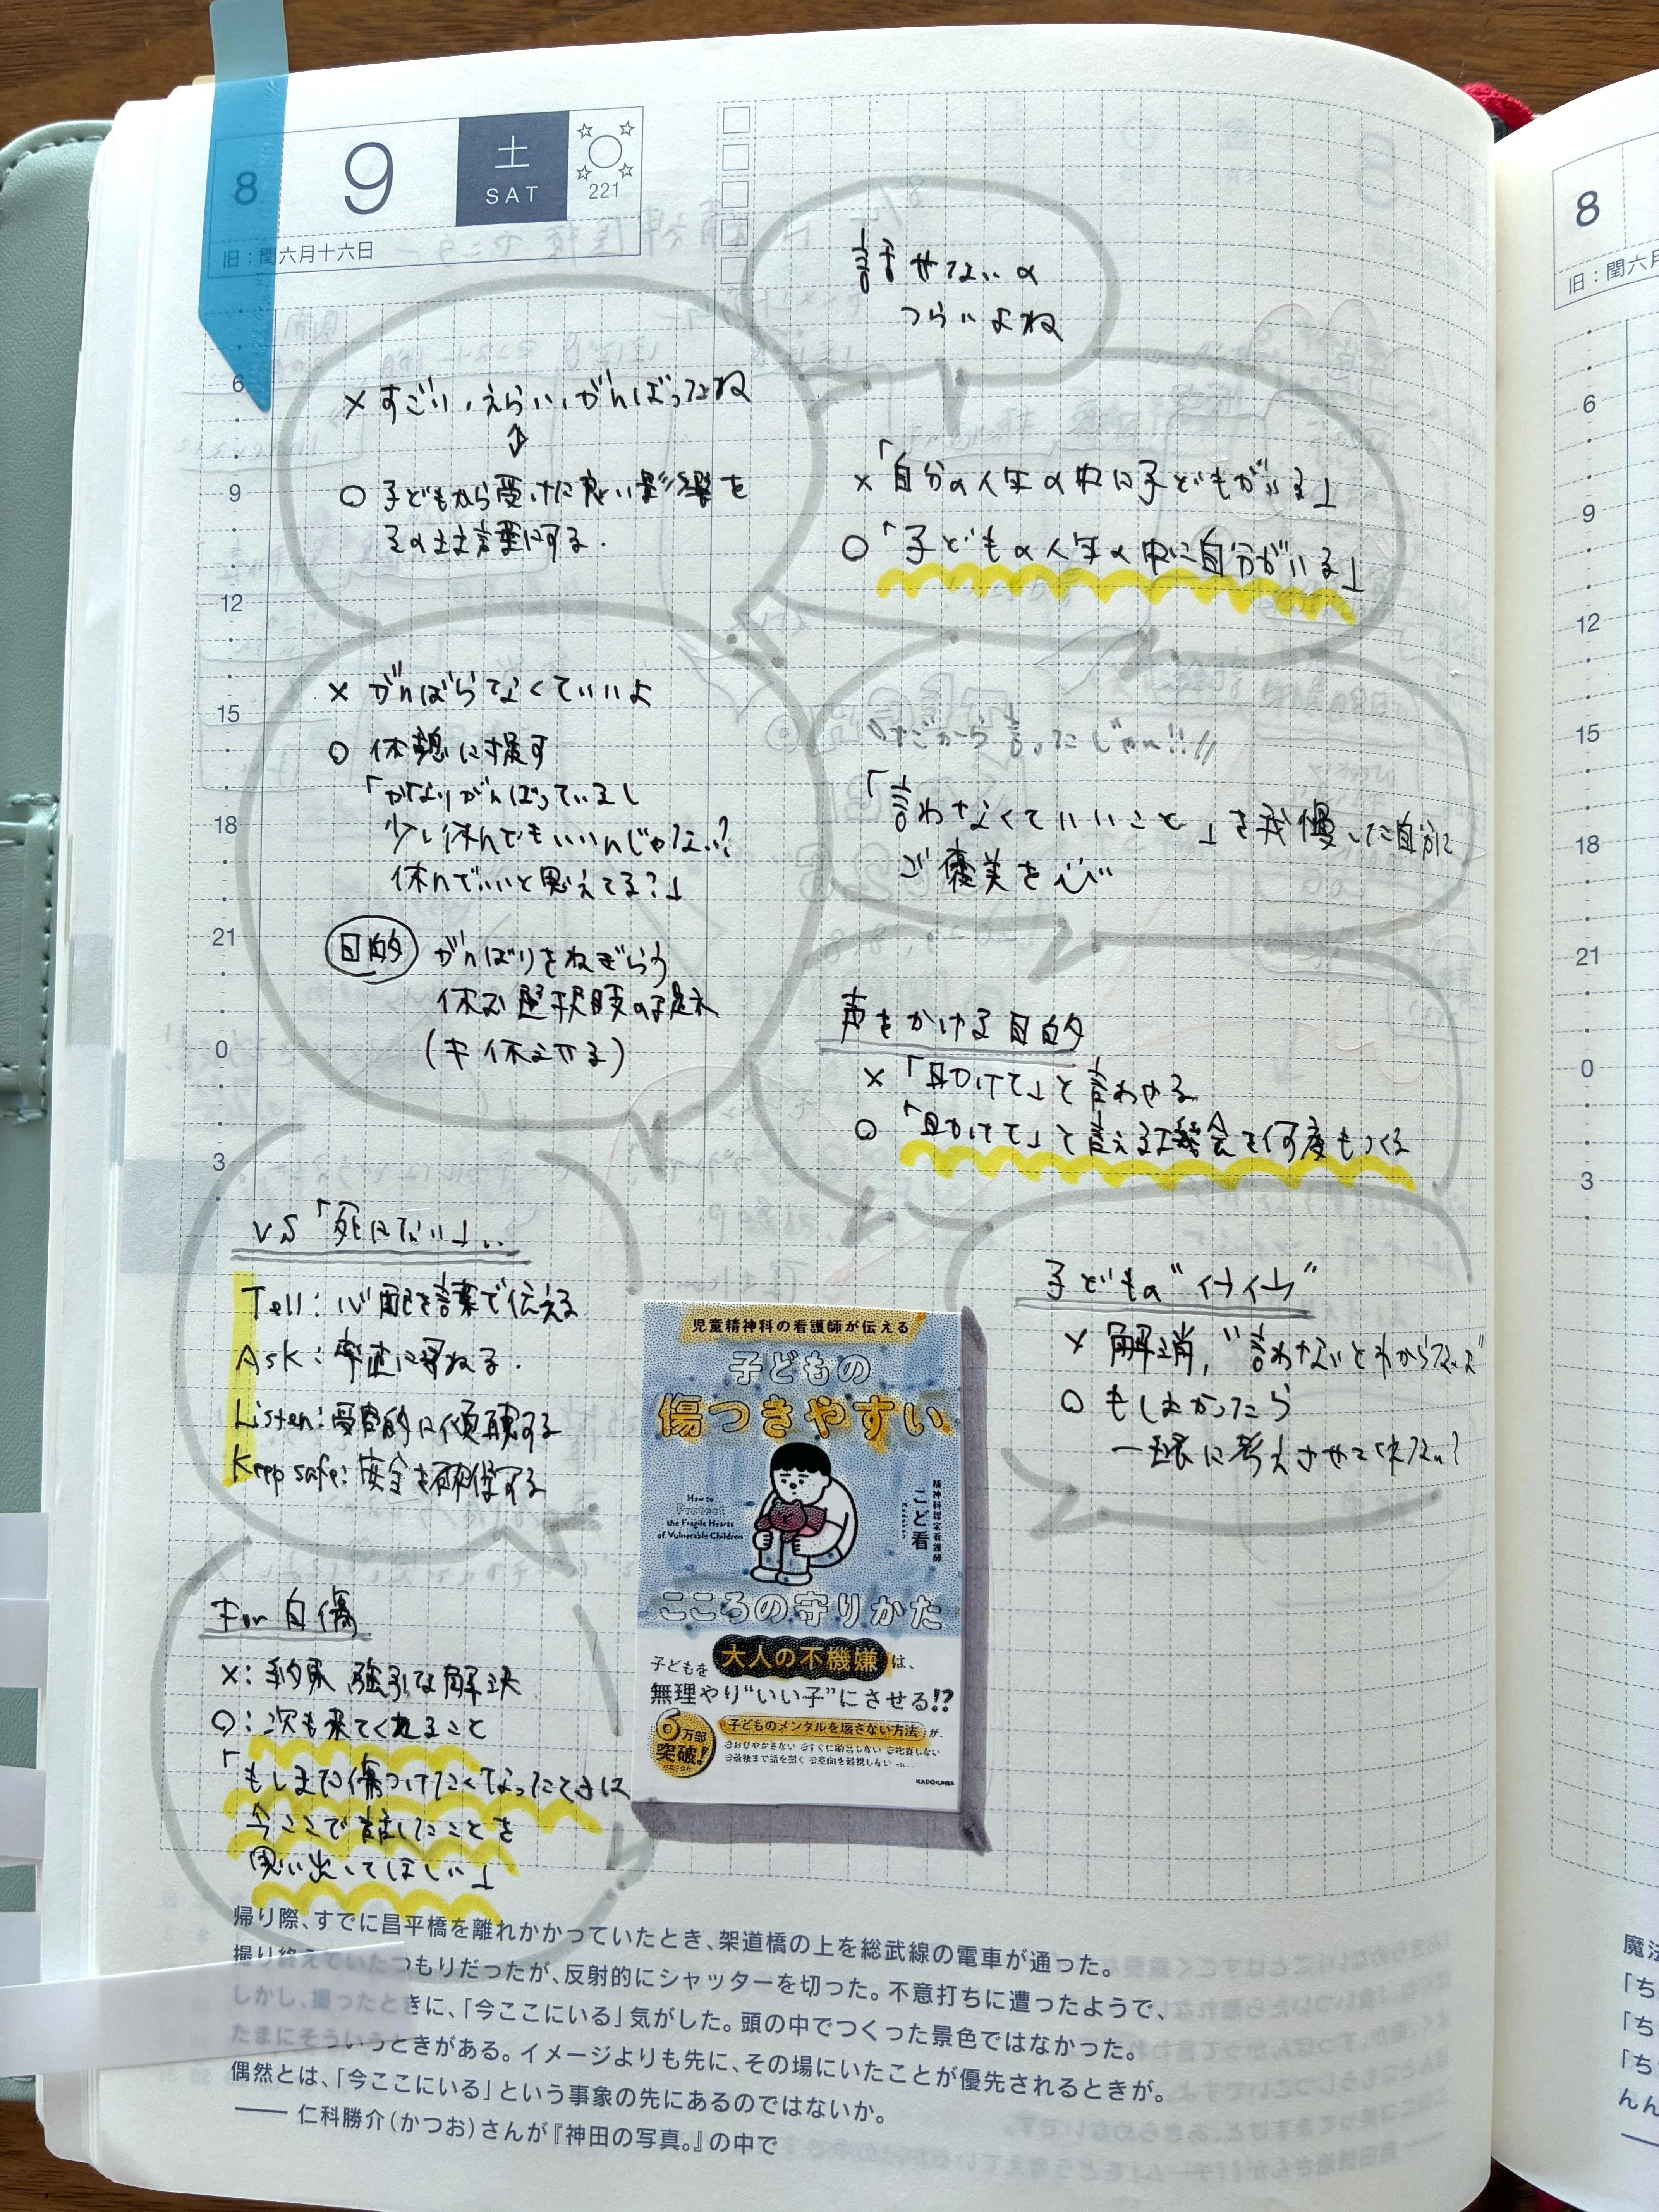 8
9
土
SAT
221
旧：閏六月十六日
話せないの
つらいよね
× すごい、えらい、がんばったね
↕
○ 子どもから受けた良い影響を
そのまま言葉にする.
×「自分の人生の中に子どもがいる」
○「子どもの人生の中に自分がいる」
× がんばらなくていいよ
○ 休憩に促す
「かなりがんばっているし
少し休んでもいいんじゃない?
休んでいいと思えてる?」
目的 がんばりをねぎらう
休む選択肢の提示
(≠休ませる)
"だから言ったじゃん!!"
「言わなくていいこと」を我慢した自分に
ご褒美を
声をかける目的
×「助けて」と言わせる
○「助けて」と言える機会を何度もつくる
vs「死にたい」..
Tell: 心配を言葉で伝える
Ask: 率直に尋ねる.
Listen: 受容的に傾聴する
Keep safe: 安全を確保する
子どもの"イライラ"
× 解消, "言わないとわからないよ"
○ もしよかったら
一緒に考えさせてくれない?
For 自傷
×: 約束 強引な解決
○: 次も来てくれること
「もしまた傷つけたくなったときは
今ここで話したことを
思い出してほしい」
児童精神科の看護師が伝える
子どもの
傷つきやすい
How to
the Fragile Hearts
of Vulnerable Children
精神科認定看護師
こど看
こころの守りかた
子どもを 大人の不機嫌 は、
無理やり“いい子”にさせる!?
6万部
突破!
子どものメンタルを壊さない方法 が、
KADOKAWA
6
9
12
15
18
21
0
3
帰り際、すでに昌平橋を離れかかっていたとき、架道橋の上を総武線の電車が通った。
撮り終えていたつもりだったが、反射的にシャッターを切った。不意打ちに遭ったようで、
しかし、撮ったときに、「今ここにいる」気がした。頭の中でつくった景色ではなかった。
たまにそういうときがある。イメージよりも先に、その場にいたことが優先されるときが。
偶然とは、「今ここにいる」という事象の先にあるのではないか。
—— 仁科勝介（かつお）さんが『神田の写真。』の中で
8
旧：閏六月
6
9
12
15
18
21
0
3
魔法
「ち
「ち
「ち
んん